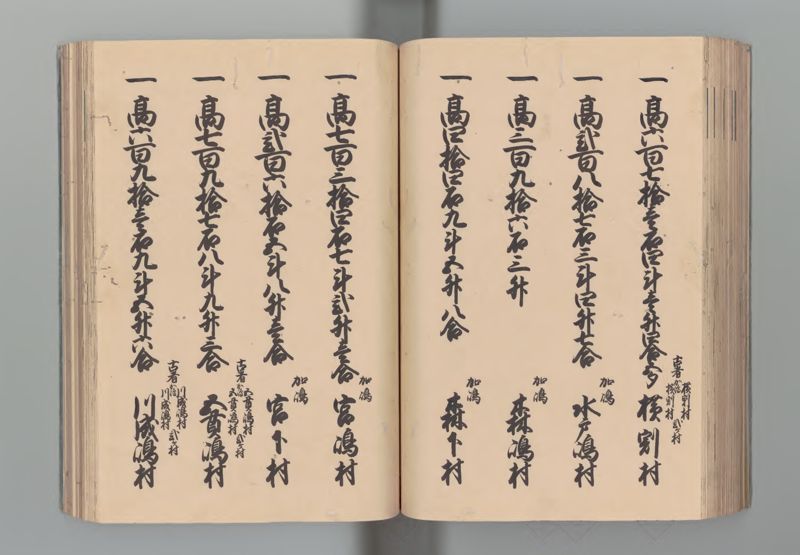 一高六百七拾壱石四斗壱升四合余
古者
横割村
加嶋
横割村 弐ヶ村
横割村
一高弐百八拾七石三斗四升七合
加嶋
水戸嶋村
一高三百九拾六石三升
加嶋
森嶋村
一高四拾四石九斗五升八合
加嶋
森下村
一高七百三拾四石七斗弐升壱合
加嶋
宮嶋村
一高弐百六拾石五斗八升壱合
加嶋
宮下村
一高七百九拾七石八斗九升三合
古者
五貫嶋村
五貫嶋村 弐ヶ村
五貫嶋村
一高六百九拾壱石九斗五升六合
古者
川成嶋村
川成嶋村 弐ヶ村
川成嶋村